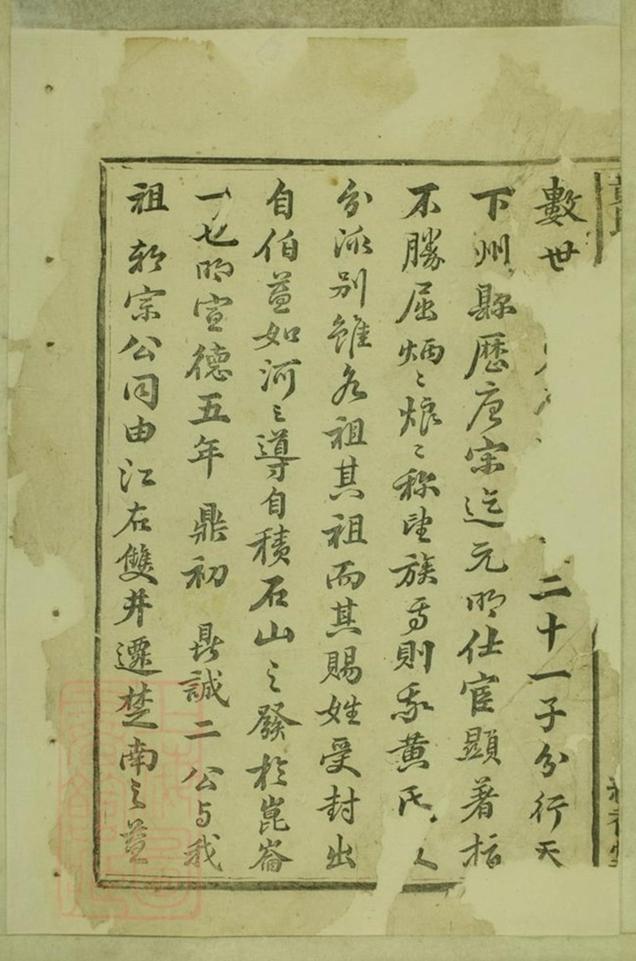 數世二十一子分行天
下州縣歷唐宋迄元明仕宦顯著指
不勝屈炳〻烺〻称望族焉則我黃氏
分派別雖各祖其祖而其賜姓受封出
自伯益如河之導自積石山之發於崑崙
一也明宣德五年鼎初鼎誠二公与我
祖朝宗公同由江右雙井遷楚南之益